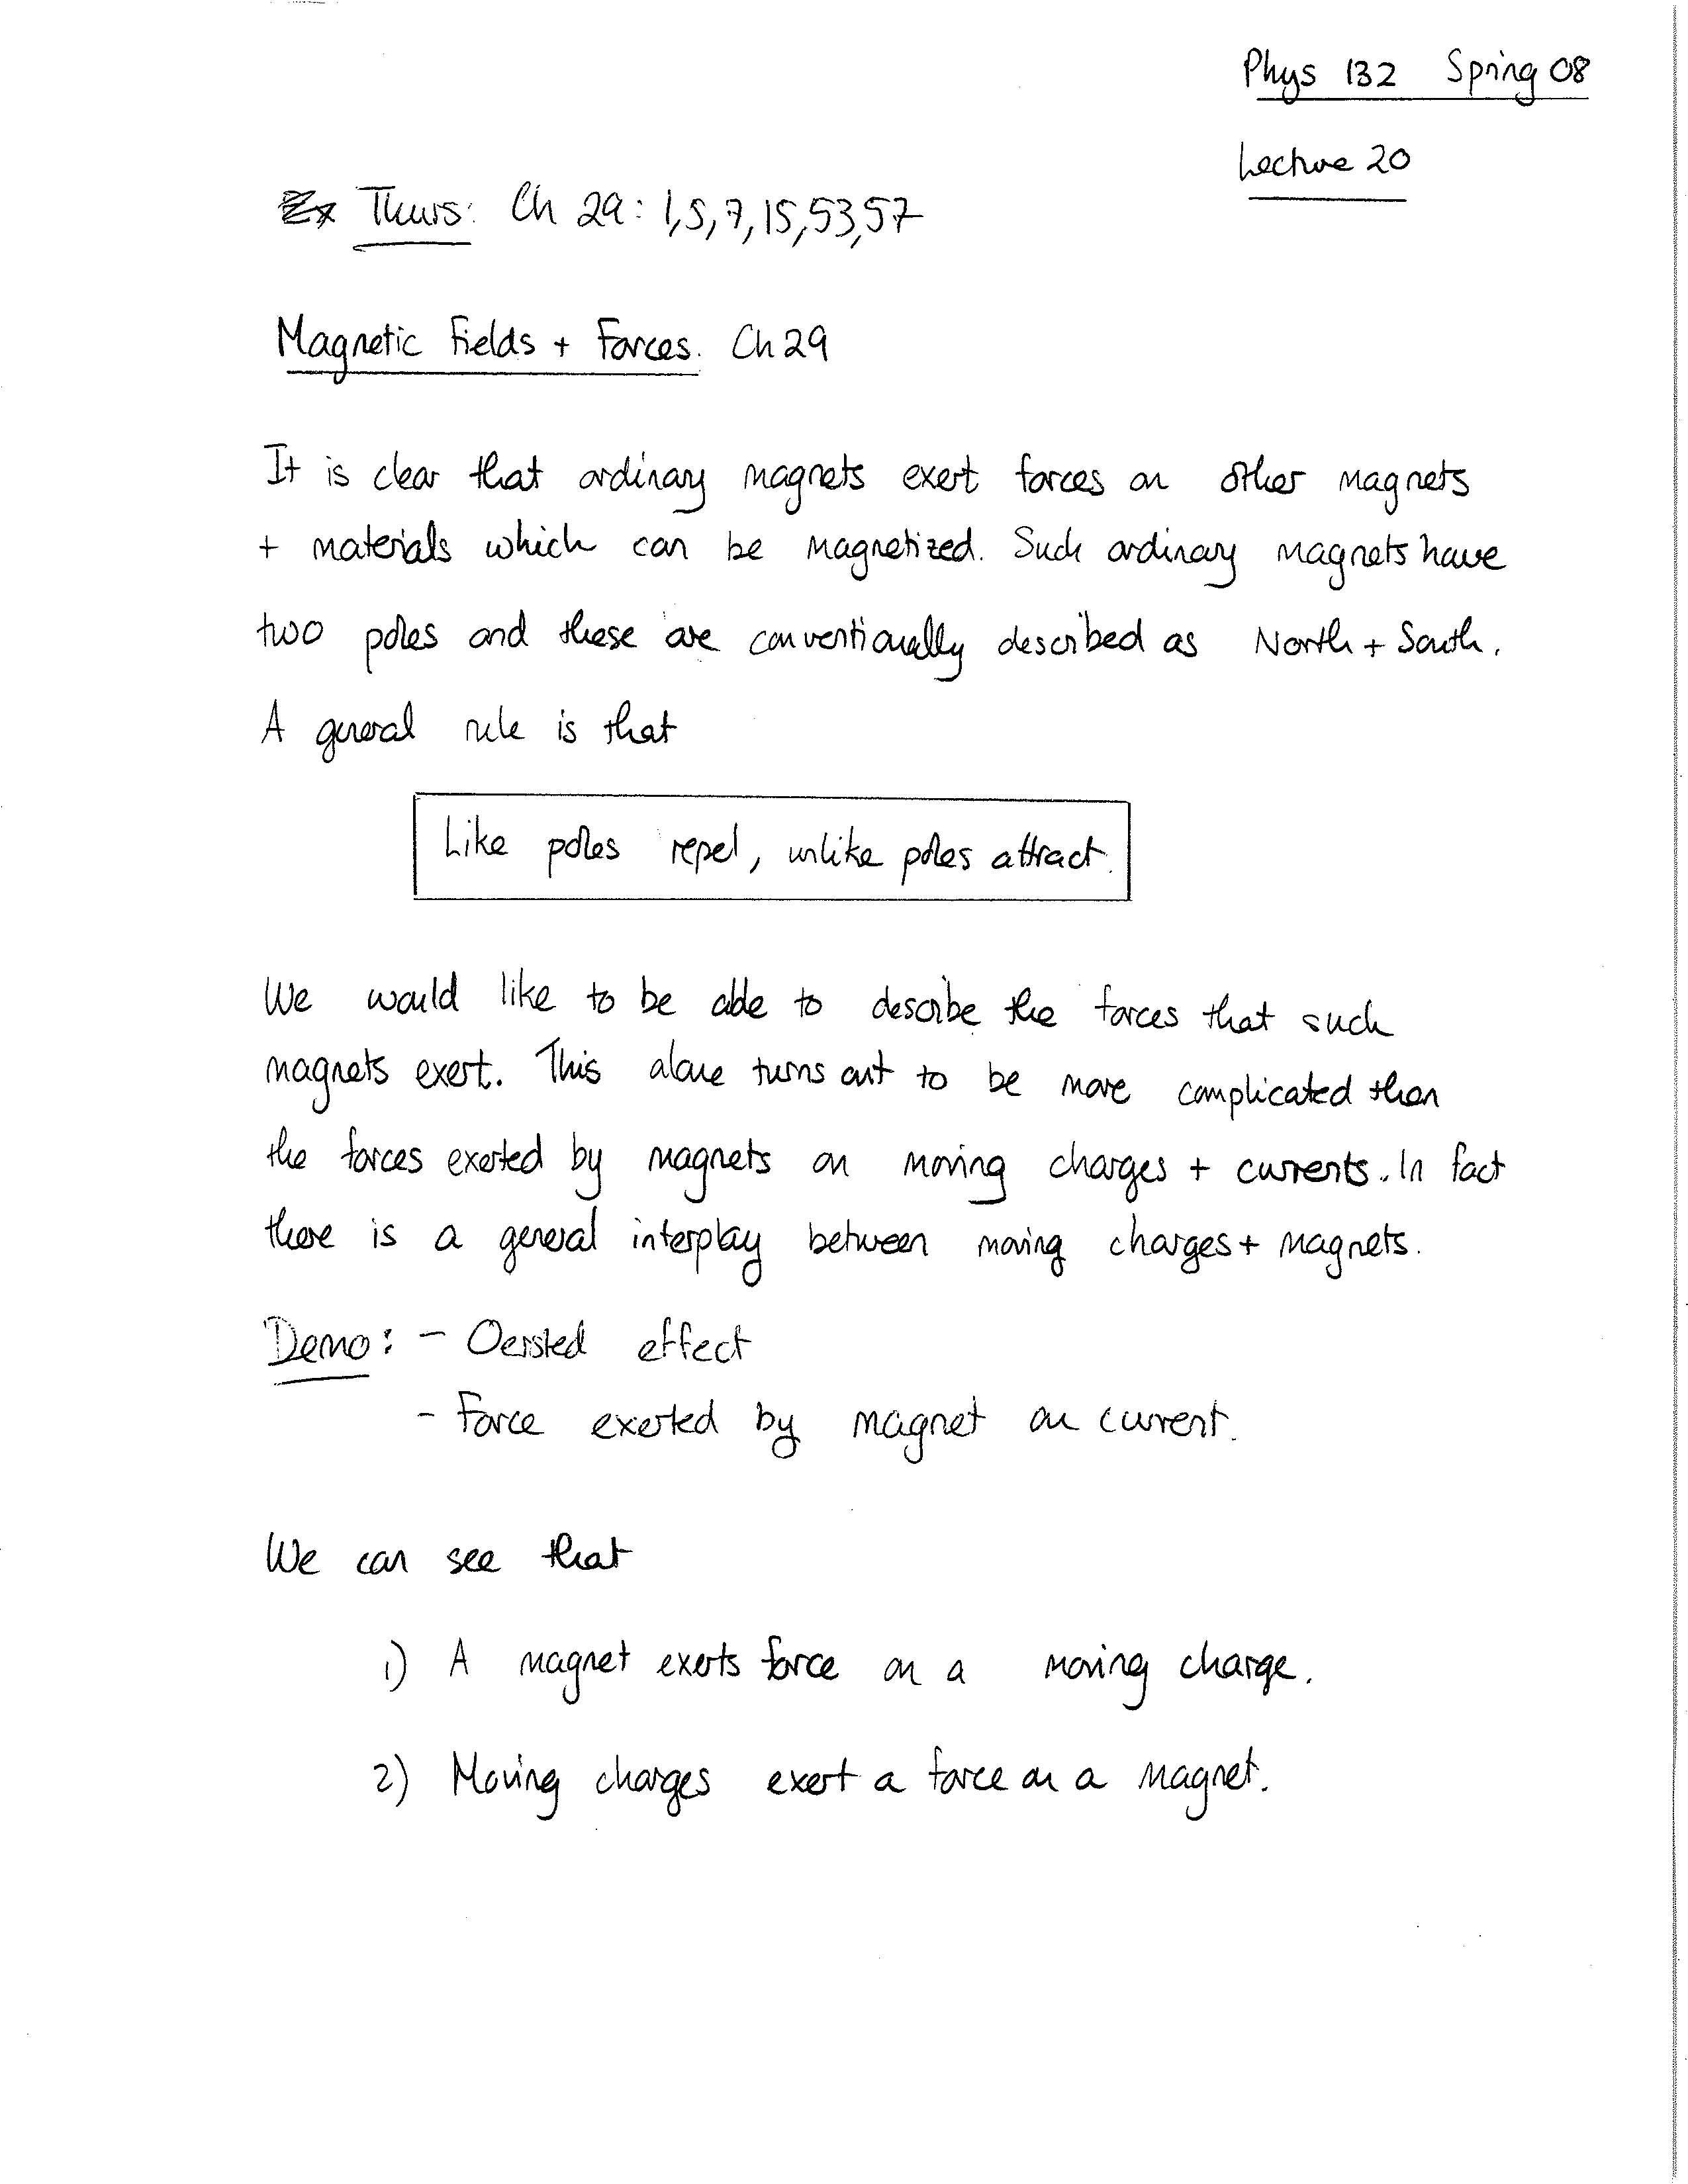 Phys 132 Spring 08
Lecture 20
Thurs: Ch 29: 1,5,7,15,53,57
Magnetic Fields + Forces. Ch 29
It is clear that ordinary magnets exert forces on other magnets
+ materials which can be magnetized. Such ordinary magnets have
two poles and these are conventionally described as North + South.
A general rule is that
Like poles repel, unlike poles attract.
We would like to be able to describe the forces that such
magnets exert. This alone turns out to be more complicated than
the forces exerted by magnets on moving charges + currents. In fact
there is a general interplay between moving charges + magnets.
Demo: - Oersted effect
- Force exerted by magnet on current.
We can see that
1) A magnet exerts force on a moving charge.
2) Moving charges exert a force on a magnet.